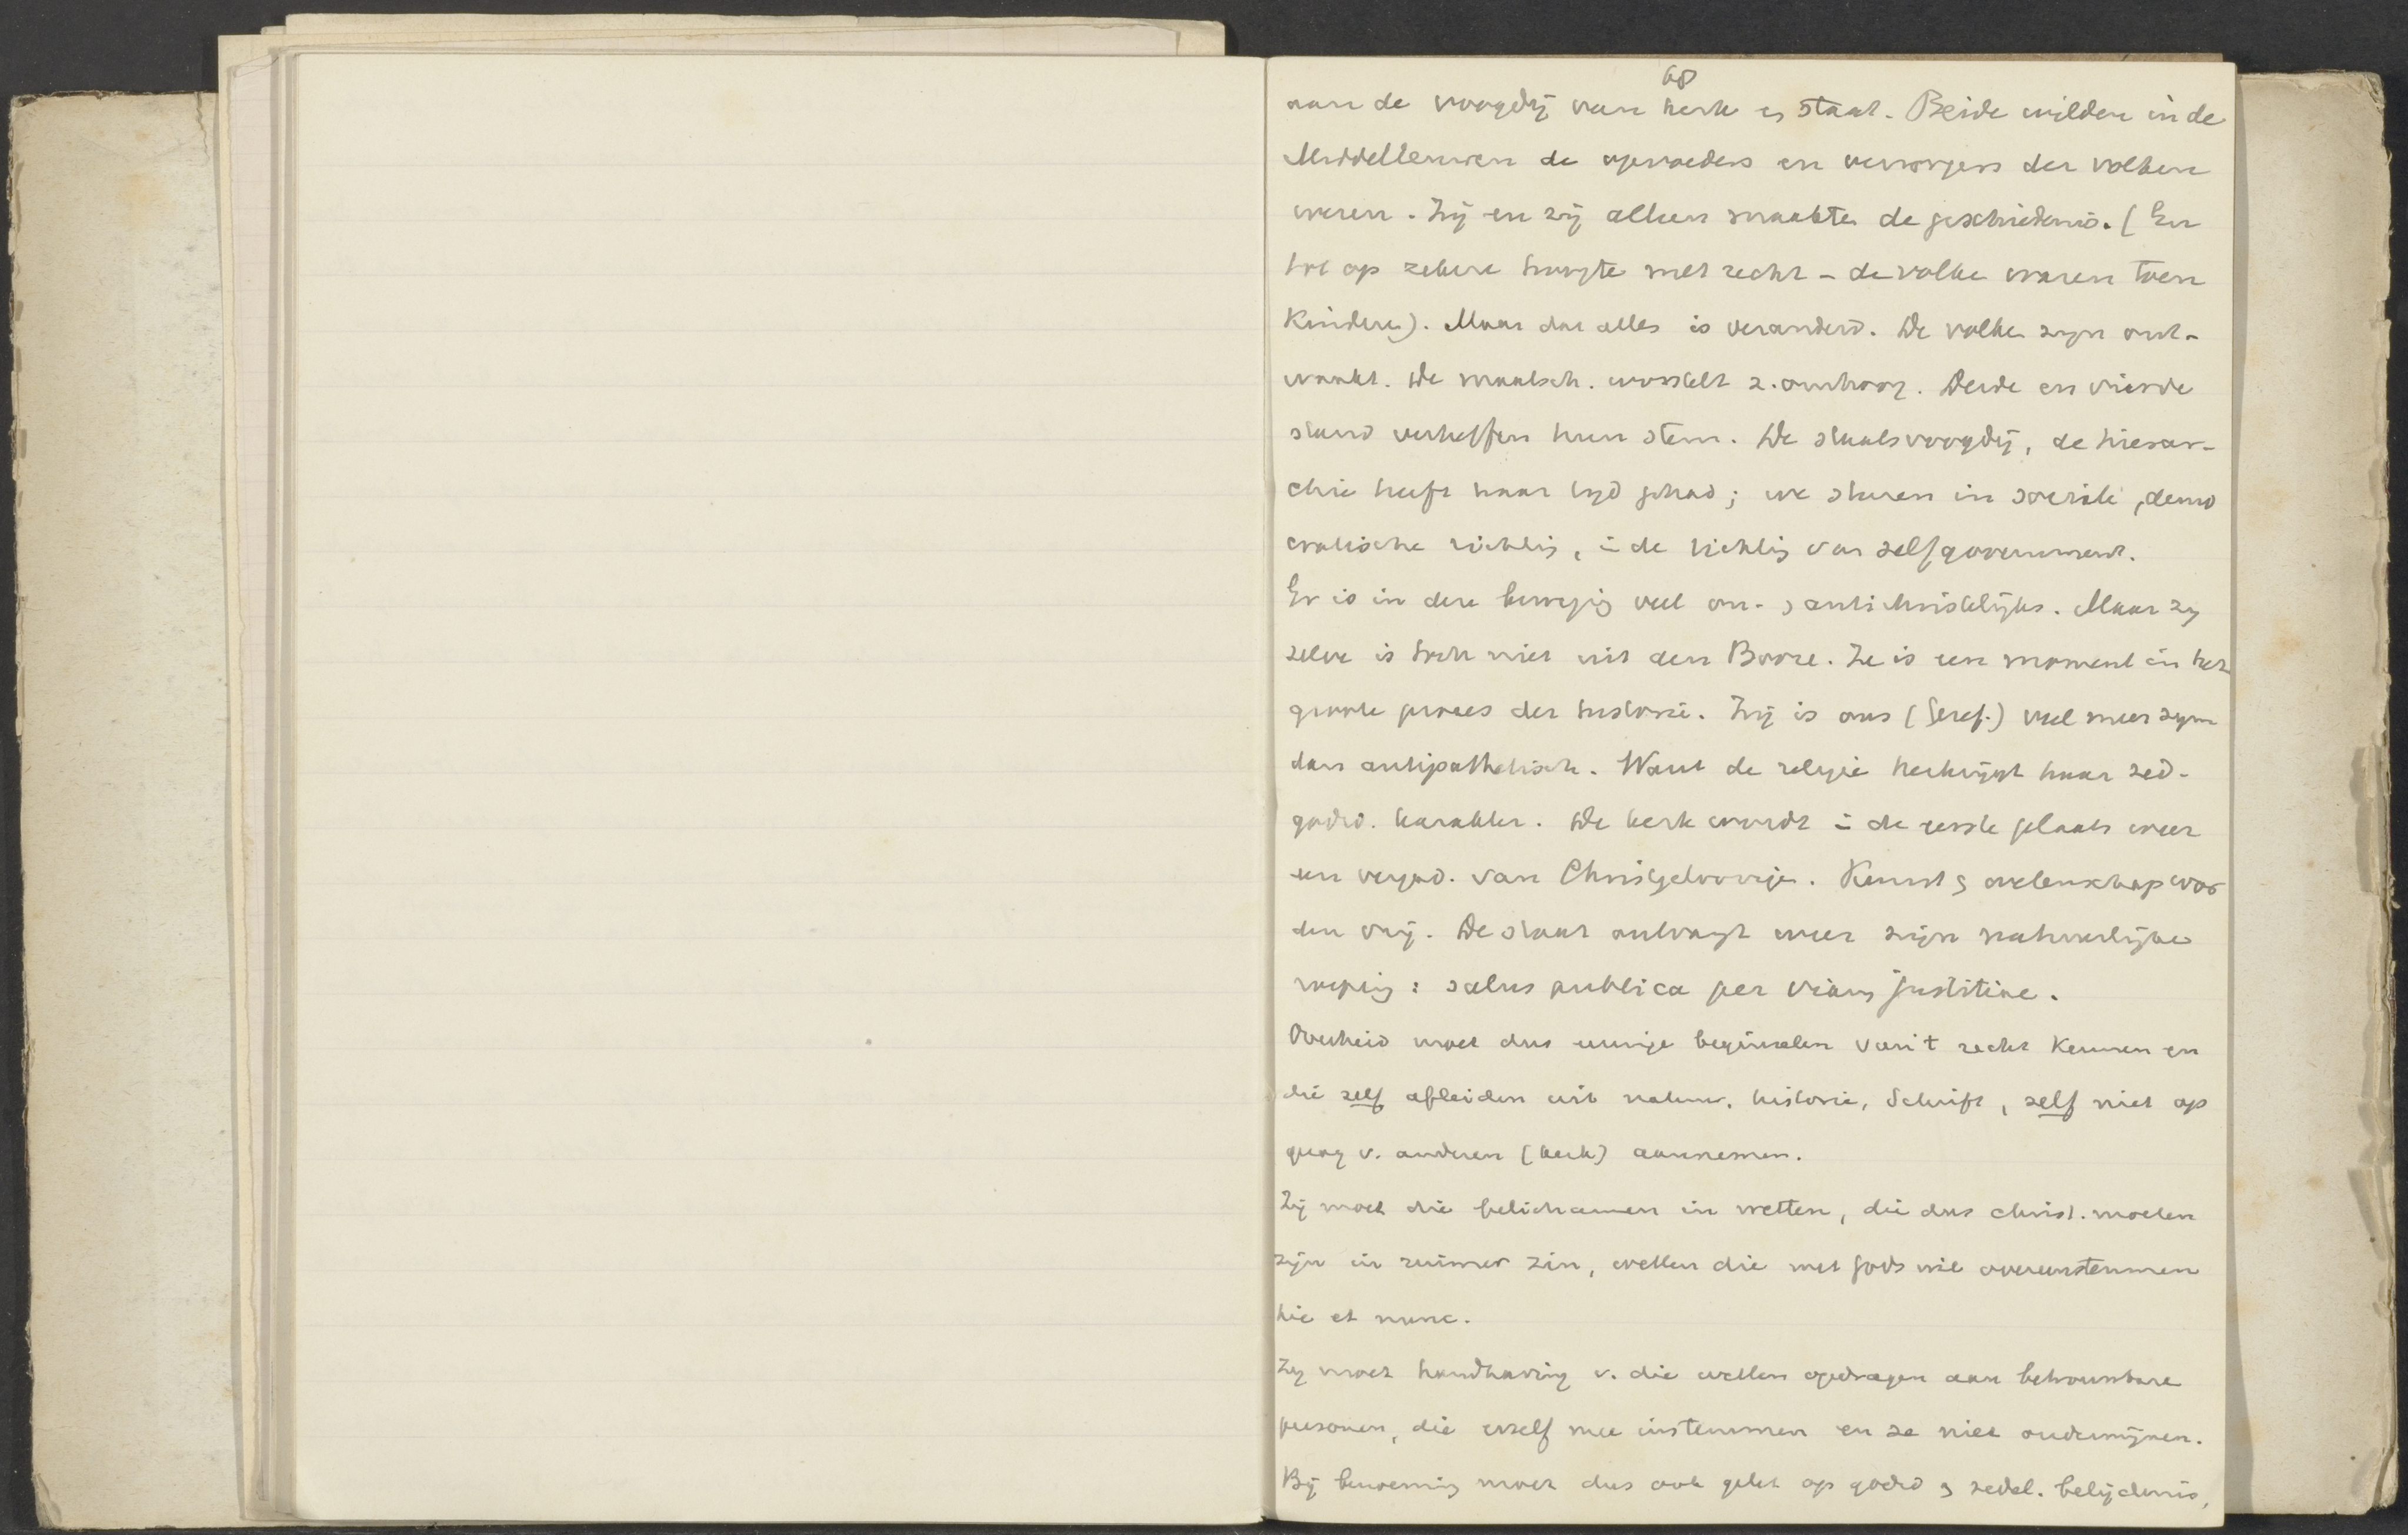 68
aan de voogdij van kerk en staat. Beide wilden in de
Middeleeuwen de opvoeders en verzorgers der volken
wezen. Zij en zij alleen maakten de geschiedenis. (En
tot op zekere hoogte met recht – de volken waren toen
kinderen). Maar dat alles is veranderd. De volken zijn ont-
waakt. De maatsch. worstelt z. omhoog. Derde en vierde
stand verheffen hun stem. De staatsvoogdij, de hierar-
chie heeft haar tijd gehad; we sturen in sociale, demo
cratische richting, in de richting van selfgovernment.
Er is in deze beweging veel on- en antichristelijks. Maar zij
zelve is toch niet uit den Booze. Ze is een moment in het
groote proces der historie. Zij is ons (Geref.) veel meer sym
dan antipathetisch. Want de religie herkrijgt haar zed-
godsd. karakter. De kerk wordt in de eerste plaats weer
een vergad. van Christgeloovigen. Kunst en wetenschap wor
den vrij. De staat ontvangt weer zijn natuurlijke
roeping: salus publica per viam justitiae.
Overheid moet dus eeuwige beginselen van 't recht kennen en
die zelf afleiden uit natuur, historie, Schrift, zelf niet op
gezag v. anderen (kerk) aannemen.
Zij moet die belichamen in wetten, die dus christ. moeten
zijn in ruimer zin, wetten die met Gods wil overeenstemmen
hic et nunc.
Zij moet handhaving v. die wetten opdragen aan betrouwbare
personen, die er zelf mee instemmen en ze niet ondermijnen.
Bij benoeming moet dus ook gelet op godsd en zedel. belijdenis,